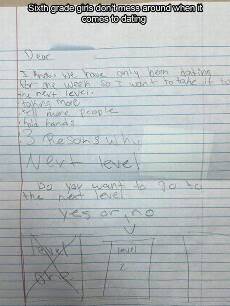 Sixth grade girls don't mess around when it
comes to dating
Dear
I know we have only been dating
for one week so I want to take it to
the next level.
talking more
tell more people
hold hands
3 Reasons why
Next level
Do you want to go to
the next level
yes or no
level
one
level
2